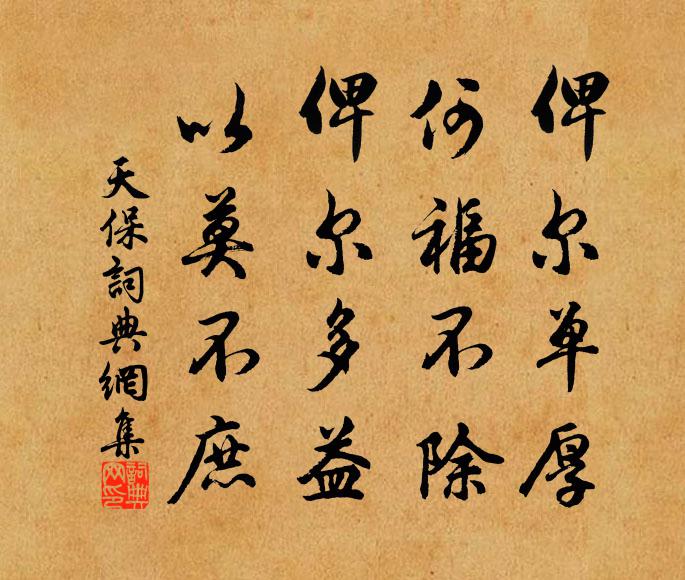 俾尔单厚
何福不除
俾尔多益
以莫不庶
天保詞典網集
詞典网印